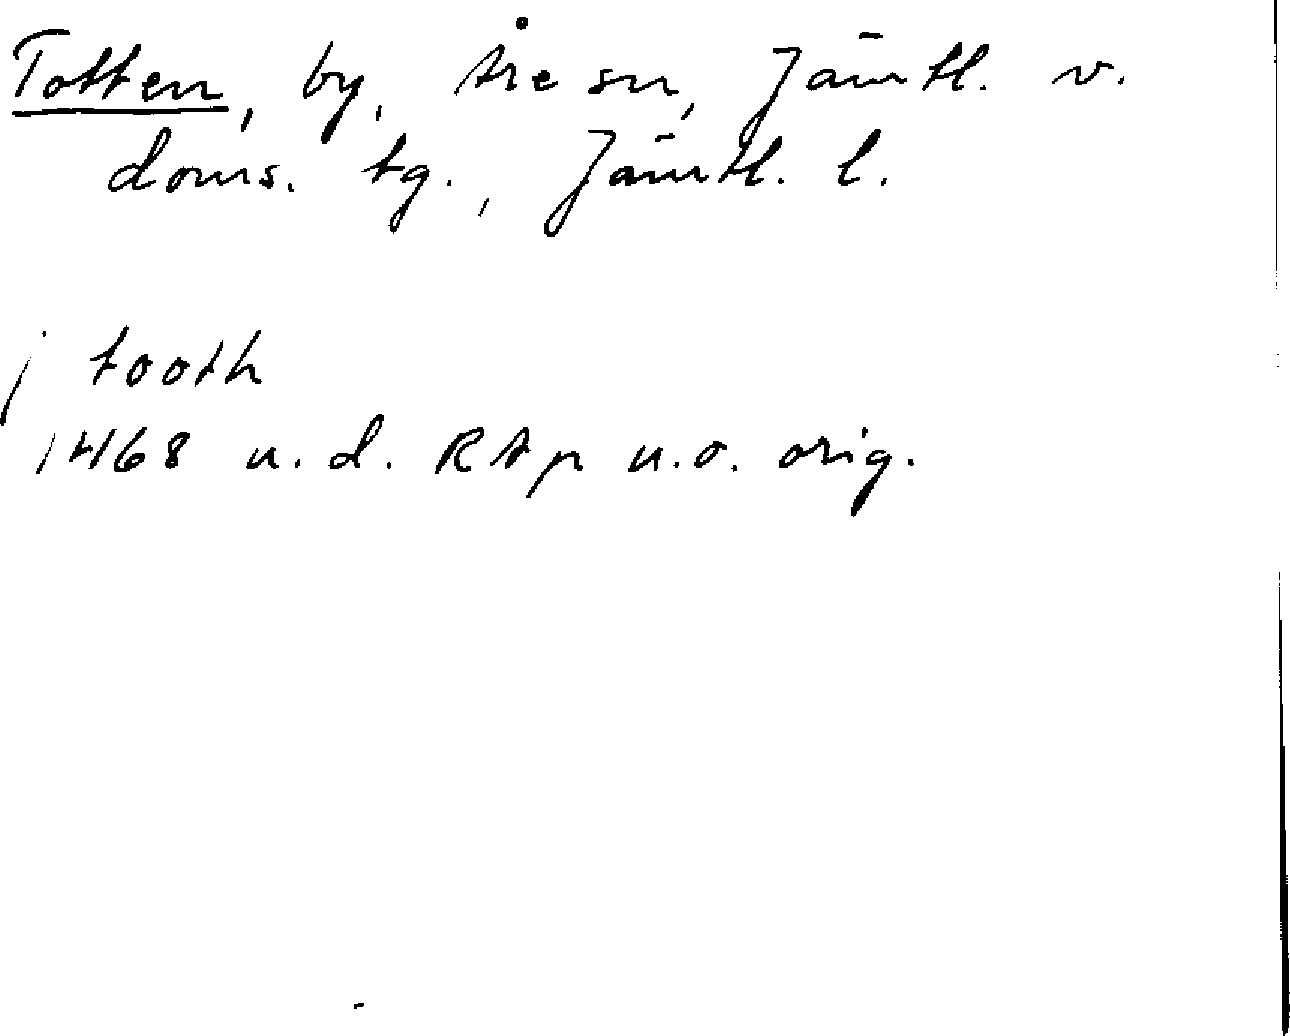 Totten, by, Åre sn, Jämtl. v.
doms. tg., Jämtl. l.
j tooth
1468 u.d. RAp n.o. orig.